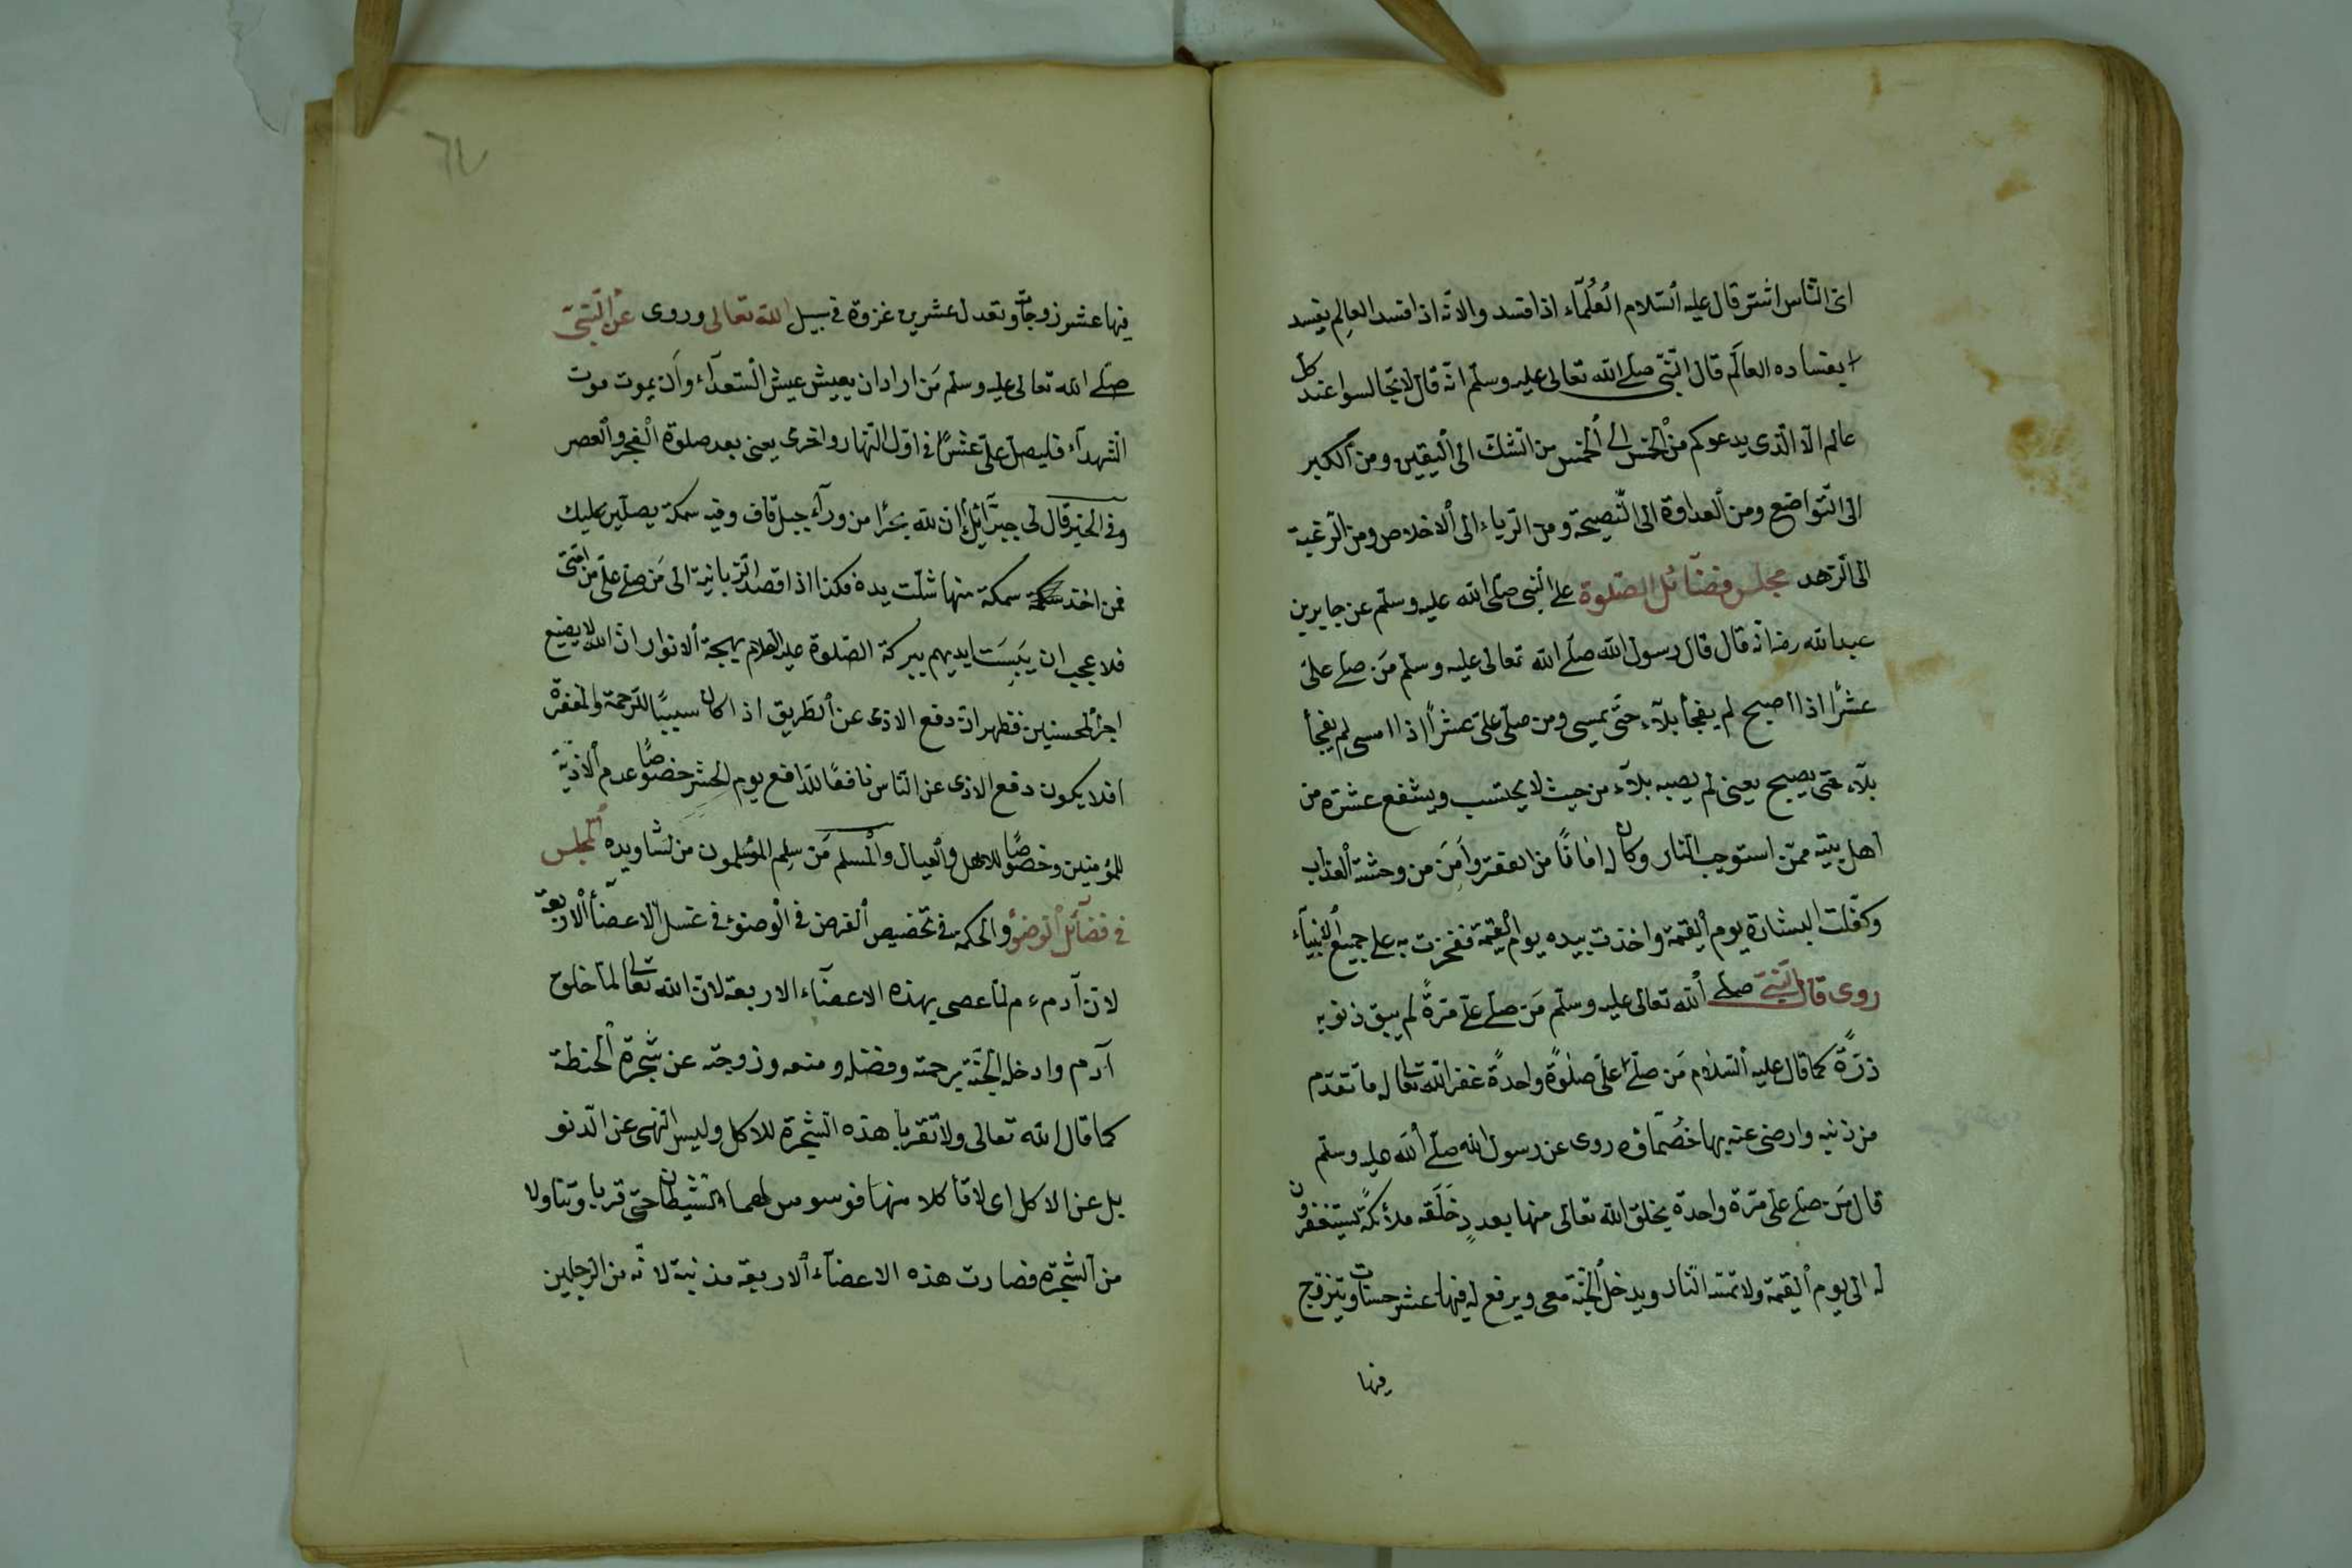 اىّ النّاس اشتر قال عليه السّلام العُلمآء اذا فسد والانّه اذا فسد العالِم يفسد
بفساده العالَم قال النّبىّ صلّى الله تعالى عليه وسلّم انّه قال لا تجالسوا عند كل
عالم الّا الّذى يدعوكم من الخمس الى الخمس من الشّك الى اليقين ومن الكبر
الى التّواضع ومن العداوة الى النّصيحة ومن الرّياء الى الاخلاص ومن الرّغبة
الى الزّهد مجلس فضآئل الصّلوة على النّبى صلّى الله عليه وسلّم عن جابربن
عبدالله رض انّه قال قال رسول الله صلّى الله تعالى عليه وسلّم مَن صلّى علىّ
عشرًا اذا اصبح لم يفجأ بلآء حتّى يمسى ومن صلّى علىّ عشرًا اذا امسى لم يفجأ
بلآء حتى يصبح يعنى لم يصبه بلآء من حيث لا يحتسب ويشفع عشرة من
اهل بيته ممّن استوجب النّار وكان له امانًا من الفقر وامَن من وحشة العذاب
وكفّلت البشارة يوم القيمة واخذت بيده يوم القيمة ففخرت به على جميع الانبيآء
روى قال النّبىّ صلّى الله تعالى عليه وسلّم مَن صلّى علىّ مرّةً لم يبق ذنوبه
ذرّةً كما قال عليه السّلام مَن صلّى علىّ صلوةً واحدةً غفر الله تعالى له ما تقدّم
من ذنبه وارضى عنه بها خصمآؤه روى عن رسول الله صلّى الله عليه وسلّم
قال مَن صلّى علىّ مرّة واحدة يخلق الله تعالى منها بعددِ خَلَقه ملآئكةً ليستغفرون
له الى يوم القيمة ولا تمسّه النّار ويدخل الجنّة معى ويرفع له فيها عشر حسنات ويتزوّج
فيها
٦٧
فيها عشر زوجات وتعدل عشرين غزوة فى سبيل الله تعالى وروى عن النّبىّ
صلّى الله تعالى عليه وسلّم مَن اراد ان يعيش عيش السّعدآء وان يموت موت
الشّهدآء فليصل علىّ عشرًا فى اوّل النّهار واخرى يعنى بعد صلوة الفجر والعصر
وفى الخبر قال لى جبرآئيل انّ لله بحرًا من ورآء جبل قاف وفيه سمكة يصلّين عليك
فمن اخذ سمكة منها شلّت يده فكذا اذا قصد الزّبانية الى مَن صلّى علىّ من امّتى
فلا عجب ان يَبِسَت ايديهم ببركة الصّلوة عليه السّلام بهجة الانوار انّ الله لا يضيع
اجر المحسنين فظهر انّ دفع الاذى عن الطّريق اذا كان سببًا للرّحمة والمغفرة
افلا يكون دفع الاذى عن النّاس نافعًا للدّافع يوم الحشر خصوصًا عدم الاذيّة
للمؤمنين وخصوصًا للاهل والعيال والمسلم مَن سلِم المسلمون من لسانه ويده المجلس
فى فضآئل الوضوء والحكمة فى تخصيص الفرض فى الوضوء فى غسل الاعضآء الاربعة
لانّ آدم ع م لمّا عصى بهذه الاعضآء الاربعة لانّ الله تعالى لمّا خلق
آدم وادخله الجنّة برحمته وفضله ومنعه وزوجته عن شجرة الحنطة
كما قال الله تعالى ولا تقربا هذه الشّجرة للاكل وليس النّهى عن الدّنو
بل عن الاكل اى لا تاكلا منها فوسوس لهما الشّيطان حتّى قربا وتناولا
من الشّجرة فصارت هذه الاعضآء الاربعة مذنبة لانّه من الرّجلين